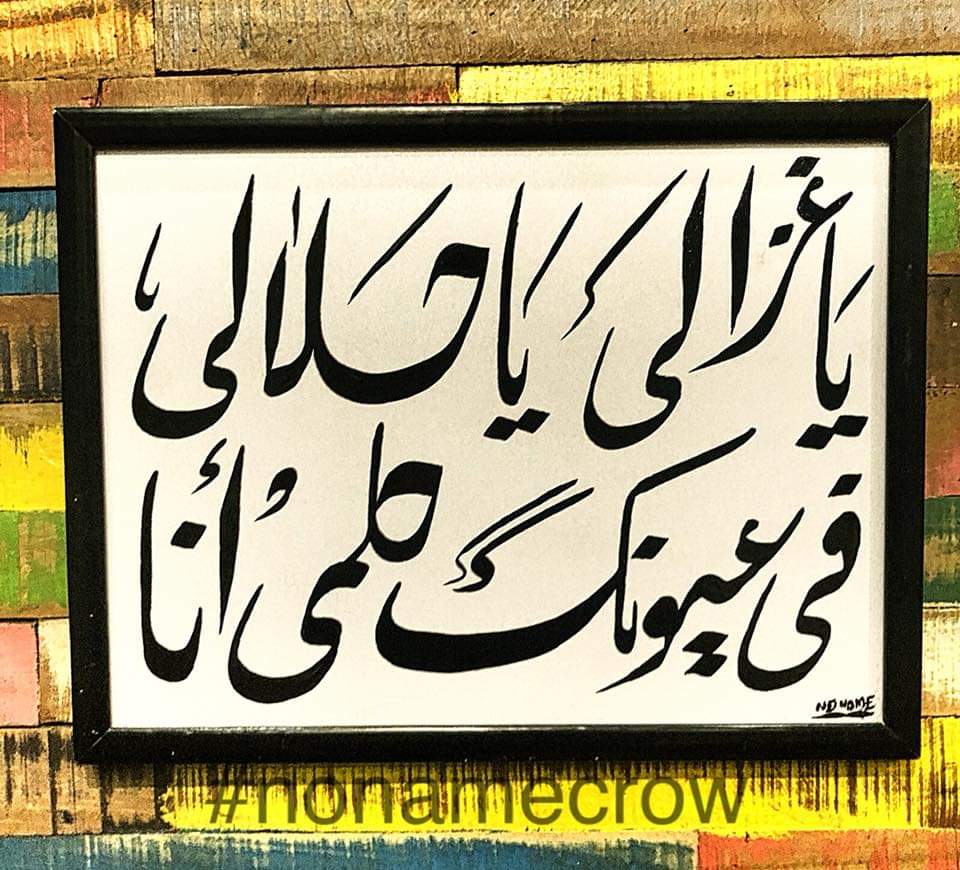 يا غزالي يا حلالي
في عيونك كلمي أنا
NO NAME
#nonamecrow